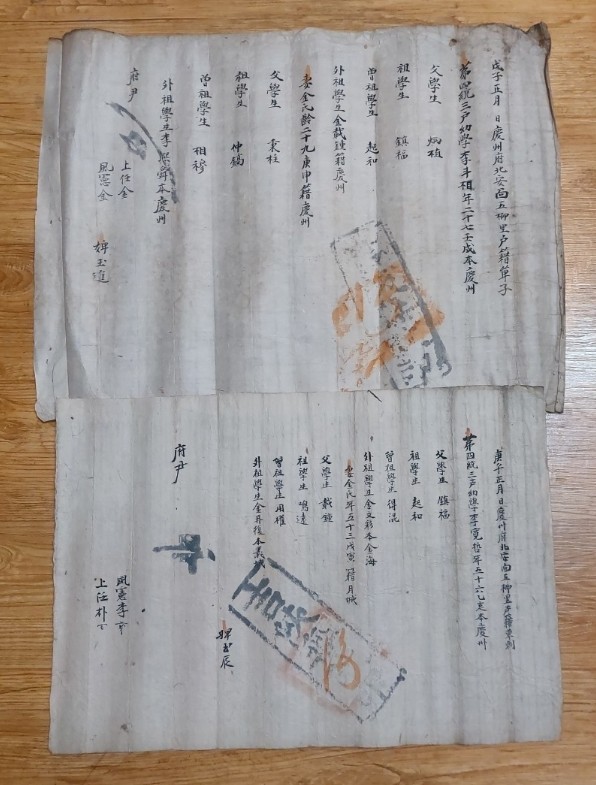 戊子正月 日慶州府北安面五柳里戶籍單子
第四統三戶幼學李斗植年二十七壬戌本慶州
父學生 炳植
祖學生 鎮福
曾祖學生 起和
外祖學生金載鍾籍慶州
妻金氏齡二十九庚申籍慶州
父學生 秉柱
祖學生 仲錫
曾祖學生 相穆
外祖學生李 本慶州
府尹
上任金
風憲金
婢玉進
庚午正月 日慶州府北安面五柳里戶籍單子
第四統三戶幼學李寬 年五十六乙亥本慶州
父學生 鎮福
祖學生 起和
曾祖學生 得混
外祖學生金 本金海
妻金氏年五十三戊寅籍月城
父學生 載鍾
祖學生 鳴達
曾祖學生 用權
外祖學生金 後本義城
府尹
婢 辰
風憲李
上任朴